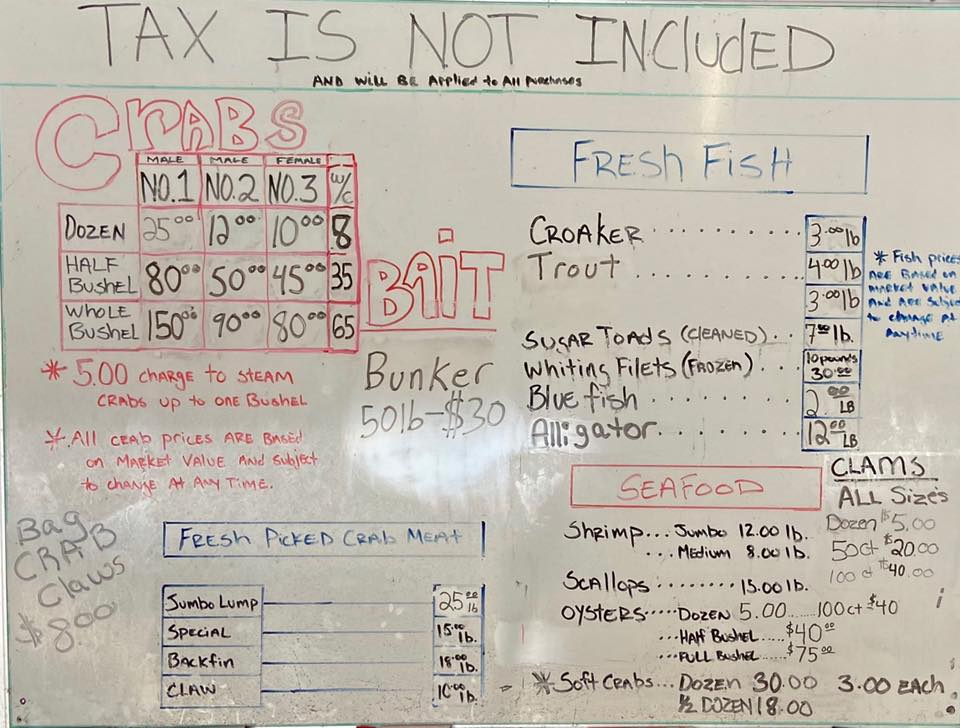 TAX IS NOT INCLUDED
AND WILL BE APPlied to All Purchases
CRABS
MALE MALE FEMALE
NO.1 NO.2 NO.3 w/c
DOZEN 25.00 12.00 10.00 8
HALF Bushel 80.00 50.00 45.00 35
WHOLE Bushel 150.00 90.00 80.00 65
* 5.00 CHARGE TO STEAM
CRABS UP TO ONE BUSHEL
* All CRAB PRICES ARE BASED
ON MARKET VALUE AND SUBJECT
to CHANGE AT ANY TIME.
BAIT
Bunker
50lb-$30
Bag
CRAB
Claws
$8.00
FRESH PICKED CRAB MEAT
Jumbo Lump 25.00 lb
SPECIAL 15.00 lb.
Backfin 18.00 lb.
CLAW 10.00 lb.
FRESH FISH
CROAKER 3.00 lb
Trout 4.00 lb
3.00 lb
SUGAR TOADS (CLEANED) 7.00 lb.
Whiting Filets (FROZEN) 10 pounds 30.00
Bluefish 2.00 LB
Alligator 12.00 LB
* Fish prices
ARE BASED on
MARKET VALUE
And ARE Subject
to change At
Anytime
SEAFOOD
Shrimp... Jumbo 12.00 lb.
... Medium 8.00 lb.
Scallops ........ 15.00 lb.
OYSTERS..... Dozen 5.00 ..... 100ct $40
...HAlf Bushel .... $40.00
...FULL Bushel ..... $75.00
* Soft CRABS... DOZEN 30.00 3.00 EACH
½ DOZEN 18.00
CLAMS
ALL Sizes
Dozen $5.00
50ct $20.00
100 ct $40.00